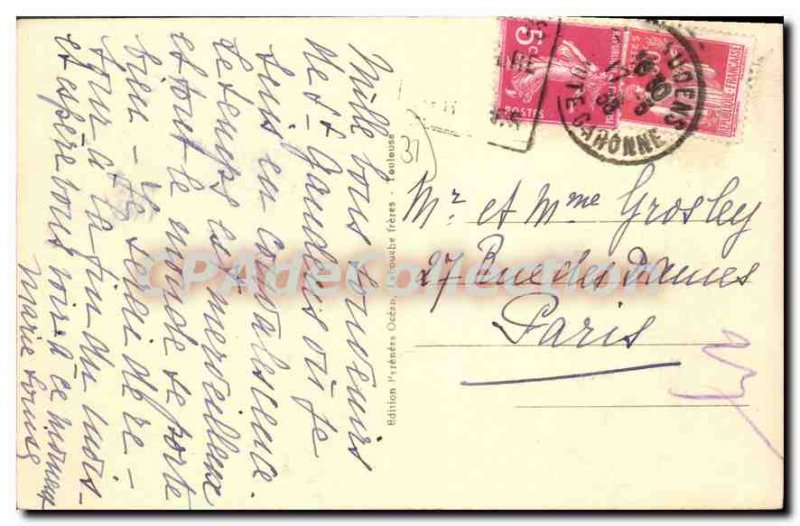 Mille bons souvenirs
de St Gaudens où je
suis en convalescence.
Le temps est merveilleux
et tout le monde se porte
bien -
à la fin du mois -
et espère vous voir à ce moment
Marie Louise
Edition Pyrénées Océan, Labouche frères - Toulouse
31
5c
POSTES
REPUBLIQUE FRANCAISE
GAUDENS
HTE GARONNE
Mr et Mme Grosley
27 Rue des Dames
Paris
CPAdeCollection